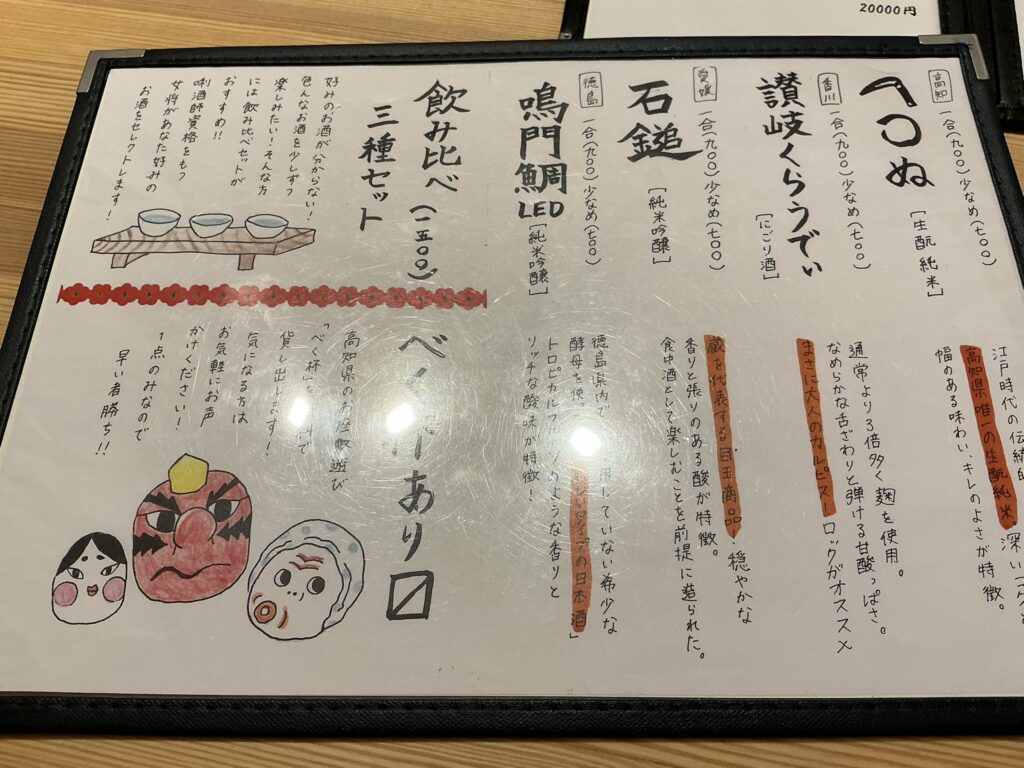 20000円
高知
一合(九〇〇)少なめ(七〇〇)
[生酛 純米]
江戸時代の伝統
高知県唯一の生酛純米、深い
幅のある味わい、キレのよさが特徴。
香川
一合(九〇〇)少なめ(七〇〇)
讃岐くらうでぃ
[にごり酒]
通常より3倍多く麹を使用。
なめらかな舌ざわりと弾ける甘酸っぱさ。
まさに大人のカルピスーロックがオススメ
愛媛
一合(九〇〇)少なめ(七〇〇)
石鎚
[純米吟醸]
蔵を代表する目玉商品・穏やかな
香りと張りのある酸が特徴。
食中酒として楽しむことを前提に造られた。
徳島
一合(九〇〇)少なめ(七〇〇)
鳴門鯛
LED
[純米吟醸]
徳島県内で
用していない希少な
酵母を使
タイプの日本酒」
トロピカルフルーツのような香りと
リッチな酸味が特徴!
飲み比べ(一五〇〇)
三種セット
好みのお酒が分からない!
色んなお酒を少しずつ
楽しみたい!そんな方
には飲み比べセットが
おすすめ!!
唎酒師資格をもつ
女将があなた好みの
お酒をセレクトします!
べく杯あり〼
高知県のお座敷遊び
「べく杯」を無料で
貸し出します!
気になる方は
お気軽にお声
かけください!
1点のみなので
早い者勝ち!!